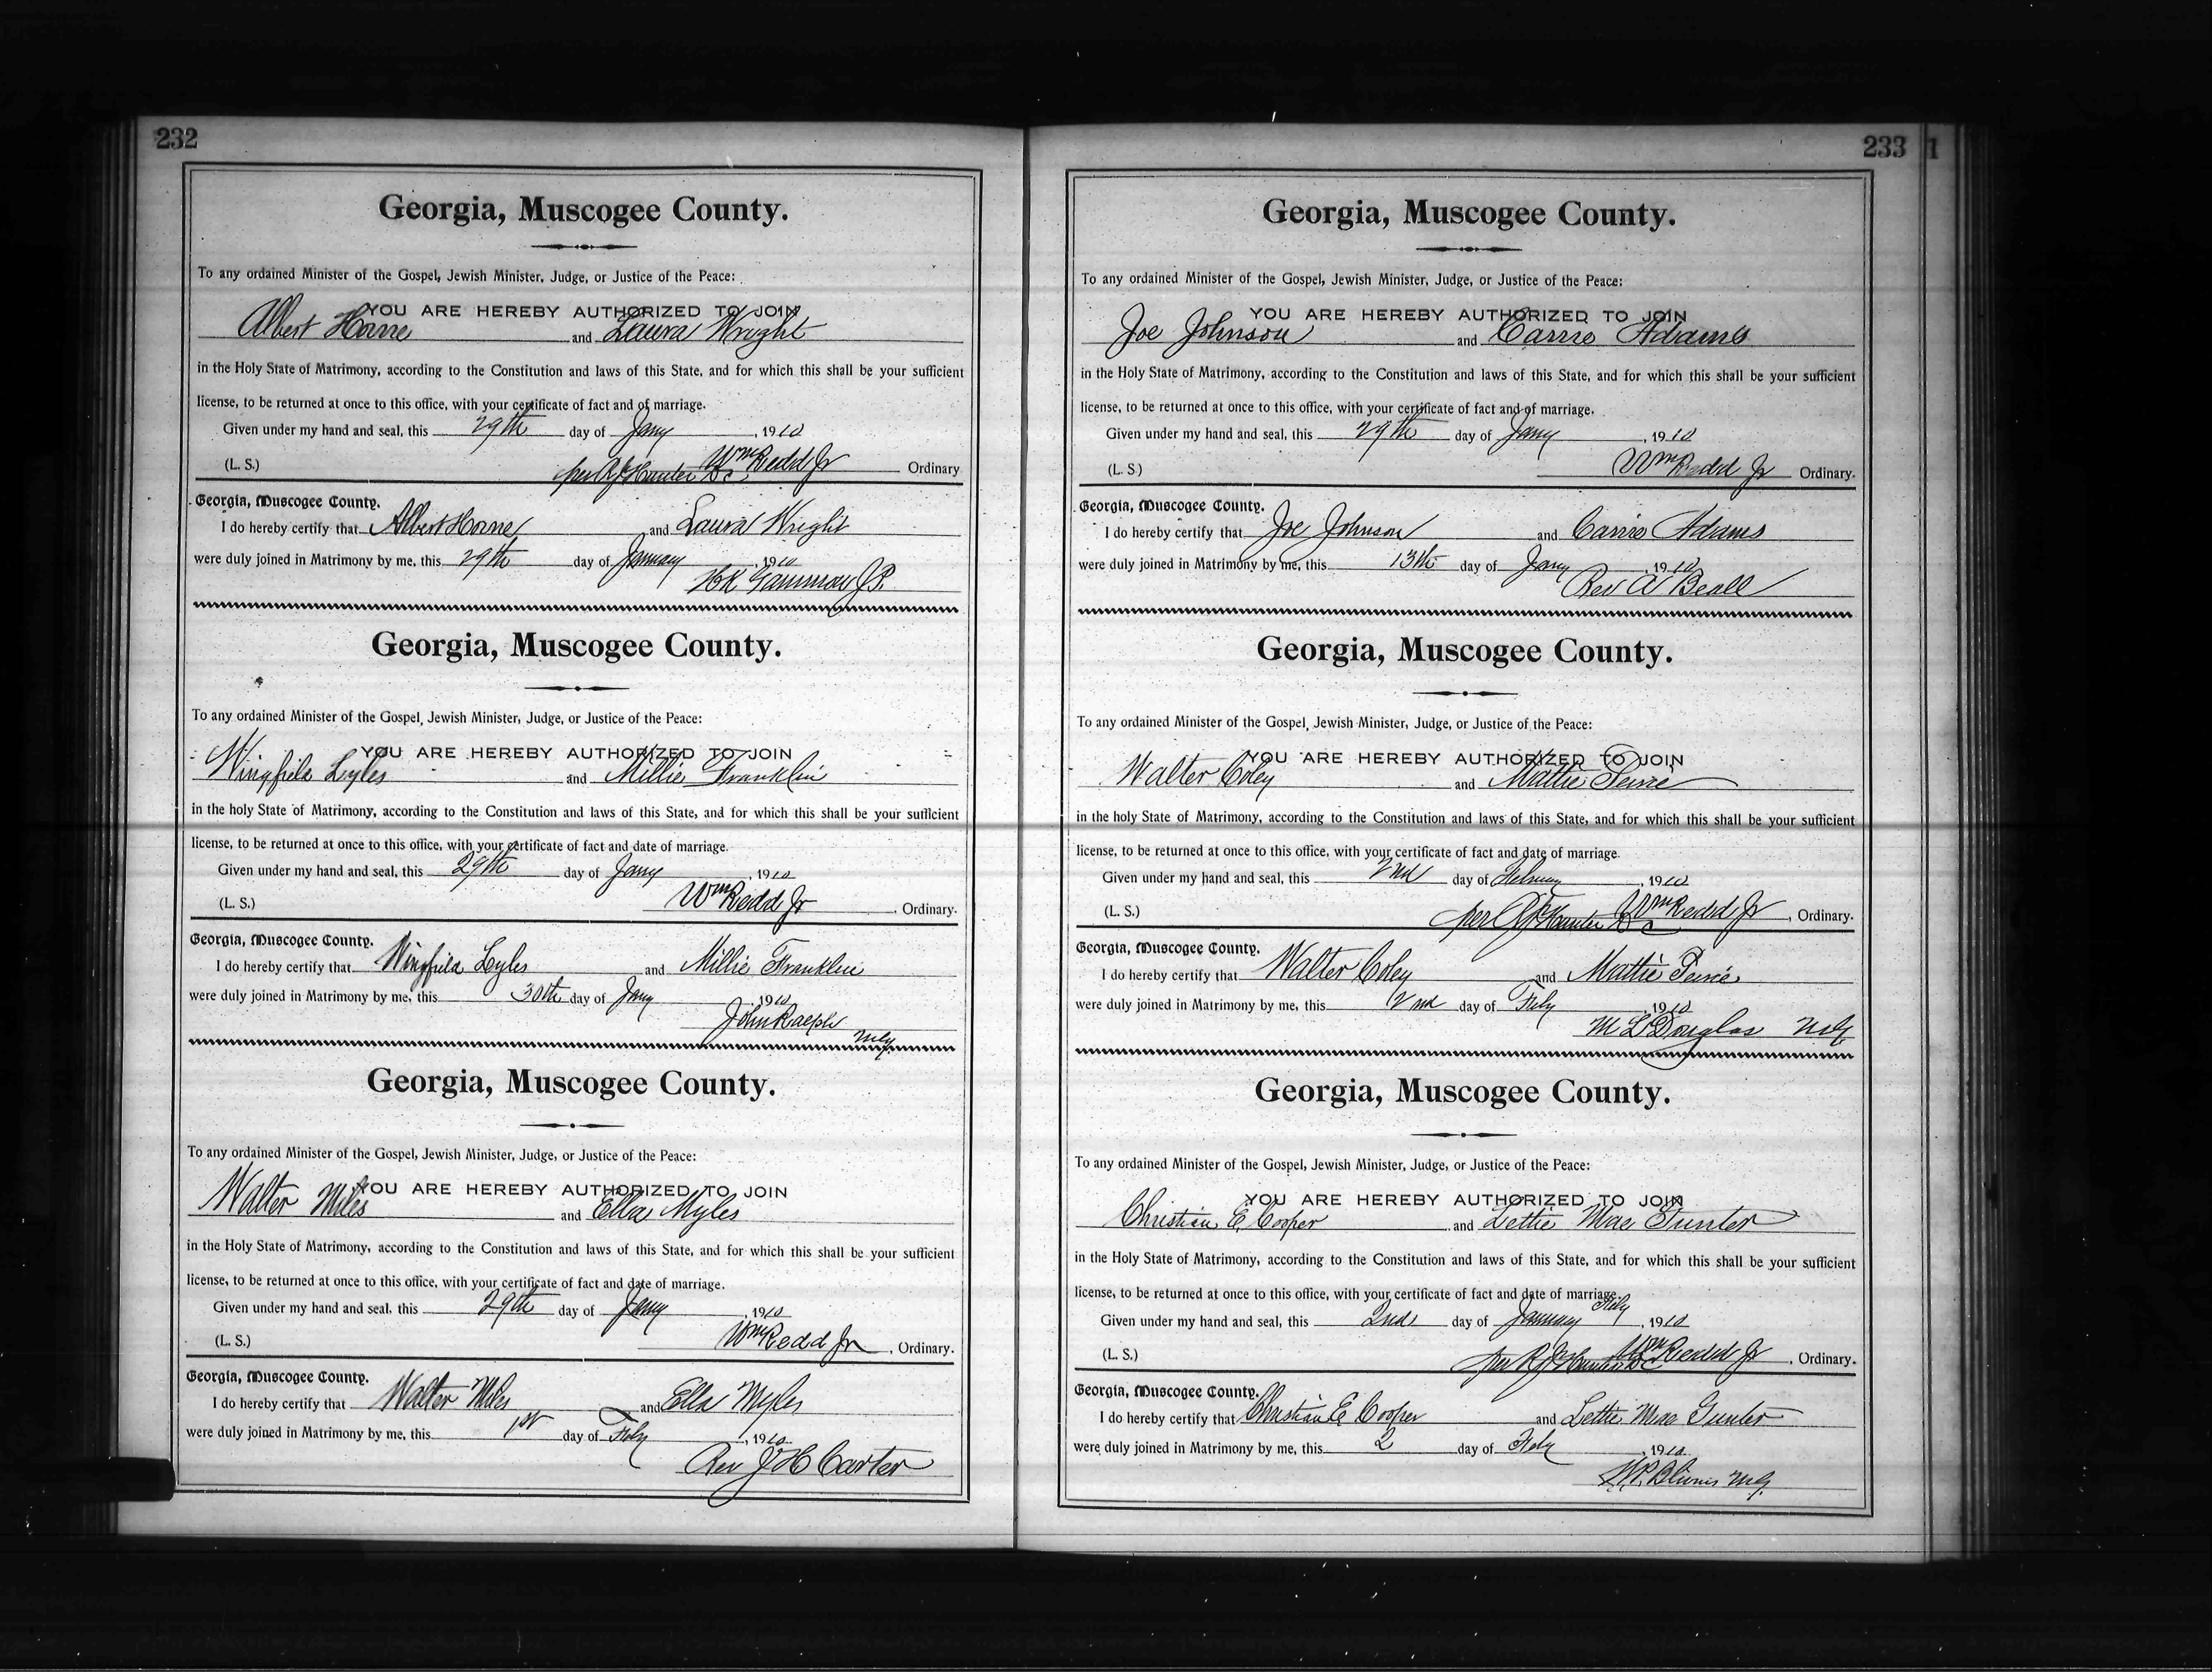 232
Georgia, Muscogee County.
To any ordained Minister of the Gospel, Jewish Minister, Judge, or Justice of the Peace:
YOU ARE HEREBY AUTHORIZED TO JOIN
Albert Horne and Laura Wright
in the Holy State of Matrimony, according to the Constitution and laws of this State, and for which this shall be your sufficient
license, to be returned at once to this office, with your certificate of fact and of marriage.
Given under my hand and seal, this 29th day of Jany, 1910
(L. S.) per R J Hunter D.C. Wm Redd Jr Ordinary
Georgia, Muscogee County.
I do hereby certify that Albert Horne and Laura Wright
were duly joined in Matrimony by me, this 29th day of January, 1910
H K Gammon J.P.
Georgia, Muscogee County.
To any ordained Minister of the Gospel, Jewish Minister, Judge, or Justice of the Peace:
YOU ARE HEREBY AUTHORIZED TO JOIN
Wingfield Lyles and Millie Franklin
in the holy State of Matrimony, according to the Constitution and laws of this State, and for which this shall be your sufficient
license, to be returned at once to this office, with your certificate of fact and date of marriage.
Given under my hand and seal, this 29th day of Jany, 1910
(L. S.) Wm Redd Jr, Ordinary.
Georgia, Muscogee County.
I do hereby certify that Wingfield Lyles and Millie Franklin
were duly joined in Matrimony by me, this 30th day of Jany, 1910
John Ralph
M.G.
Georgia, Muscogee County.
To any ordained Minister of the Gospel, Jewish Minister, Judge, or Justice of the Peace:
YOU ARE HEREBY AUTHORIZED TO JOIN
Walter Miles and Ella Myles
in the Holy State of Matrimony, according to the Constitution and laws of this State, and for which this shall be your sufficient
license, to be returned at once to this office, with your certificate of fact and date of marriage.
Given under my hand and seal, this 29th day of Jany, 1910
(L. S.) Wm Redd Jr, Ordinary.
Georgia, Muscogee County.
I do hereby certify that Walter Miles and Ella Myles
were duly joined in Matrimony by me, this 1st day of Feby, 1910
Rev J H Carter
233 1
Georgia, Muscogee County.
To any ordained Minister of the Gospel, Jewish Minister, Judge, or Justice of the Peace:
YOU ARE HEREBY AUTHORIZED TO JOIN
Joe Johnson and Carrie Adams
in the Holy State of Matrimony, according to the Constitution and laws of this State, and for which this shall be your sufficient
license, to be returned at once to this office, with your certificate of fact and of marriage.
Given under my hand and seal, this 29th day of Jany, 1910
(L. S.) Wm Redd Jr Ordinary.
Georgia, Muscogee County.
I do hereby certify that Joe Johnson and Carrie Adams
were duly joined in Matrimony by me, this 13th day of Jany, 1910
Rev A Beall
Georgia, Muscogee County.
To any ordained Minister of the Gospel, Jewish Minister, Judge, or Justice of the Peace:
YOU ARE HEREBY AUTHORIZED TO JOIN
Walter Coley and Mattie
in the holy State of Matrimony, according to the Constitution and laws of this State, and for which this shall be your sufficient
license, to be returned at once to this office, with your certificate of fact and date of marriage.
Given under my hand and seal, this 2nd day of February, 1910
(L. S.) per R J Hunter D C Wm Redd Jr, Ordinary.
Georgia, Muscogee County.
I do hereby certify that Walter Coley and Mattie
were duly joined in Matrimony by me, this 2nd day of Feby, 1910
M L Douglas M.G.
Georgia, Muscogee County.
To any ordained Minister of the Gospel, Jewish Minister, Judge, or Justice of the Peace:
YOU ARE HEREBY AUTHORIZED TO JOIN
Christian E. Cooper and Lettie Mae Gunter
in the Holy State of Matrimony, according to the Constitution and laws of this State, and for which this shall be your sufficient
license, to be returned at once to this office, with your certificate of fact and date of marriage.
Feby
Given under my hand and seal, this 2nd day of January, 1910
(L. S.) per R J Hunter D C Wm Redd Jr, Ordinary.
Georgia, Muscogee County.
I do hereby certify that Christian E Cooper and Lettie Mae Gunter
were duly joined in Matrimony by me, this 2 day of Feby, 1910
M.G.